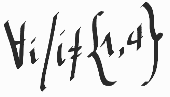 ∀i/i≠{1,4}